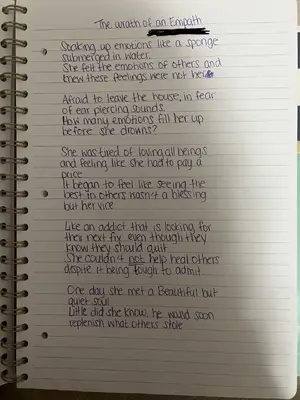 The wrath of an Empath
Soaking up emotions like a sponge
submerged in water.
She felt the emotions of others and
knew these feelings were not hers
Afraid to leave the house, in fear
of ear piercing sounds.
How many emotions fill her up
before she drowns?
She was tired of loving all beings
and feeling like she had to pay a
price
It began to feel like seeing the
best in others wasn't a blessing
but her vice
Like an addict that is looking for
their next fix even though they
know they should quit
She couldn't not help heal others
despite it being tough to admit
One day she met a Beautiful but
quiet soul
Little did she know, he would soon
replenish what others stole